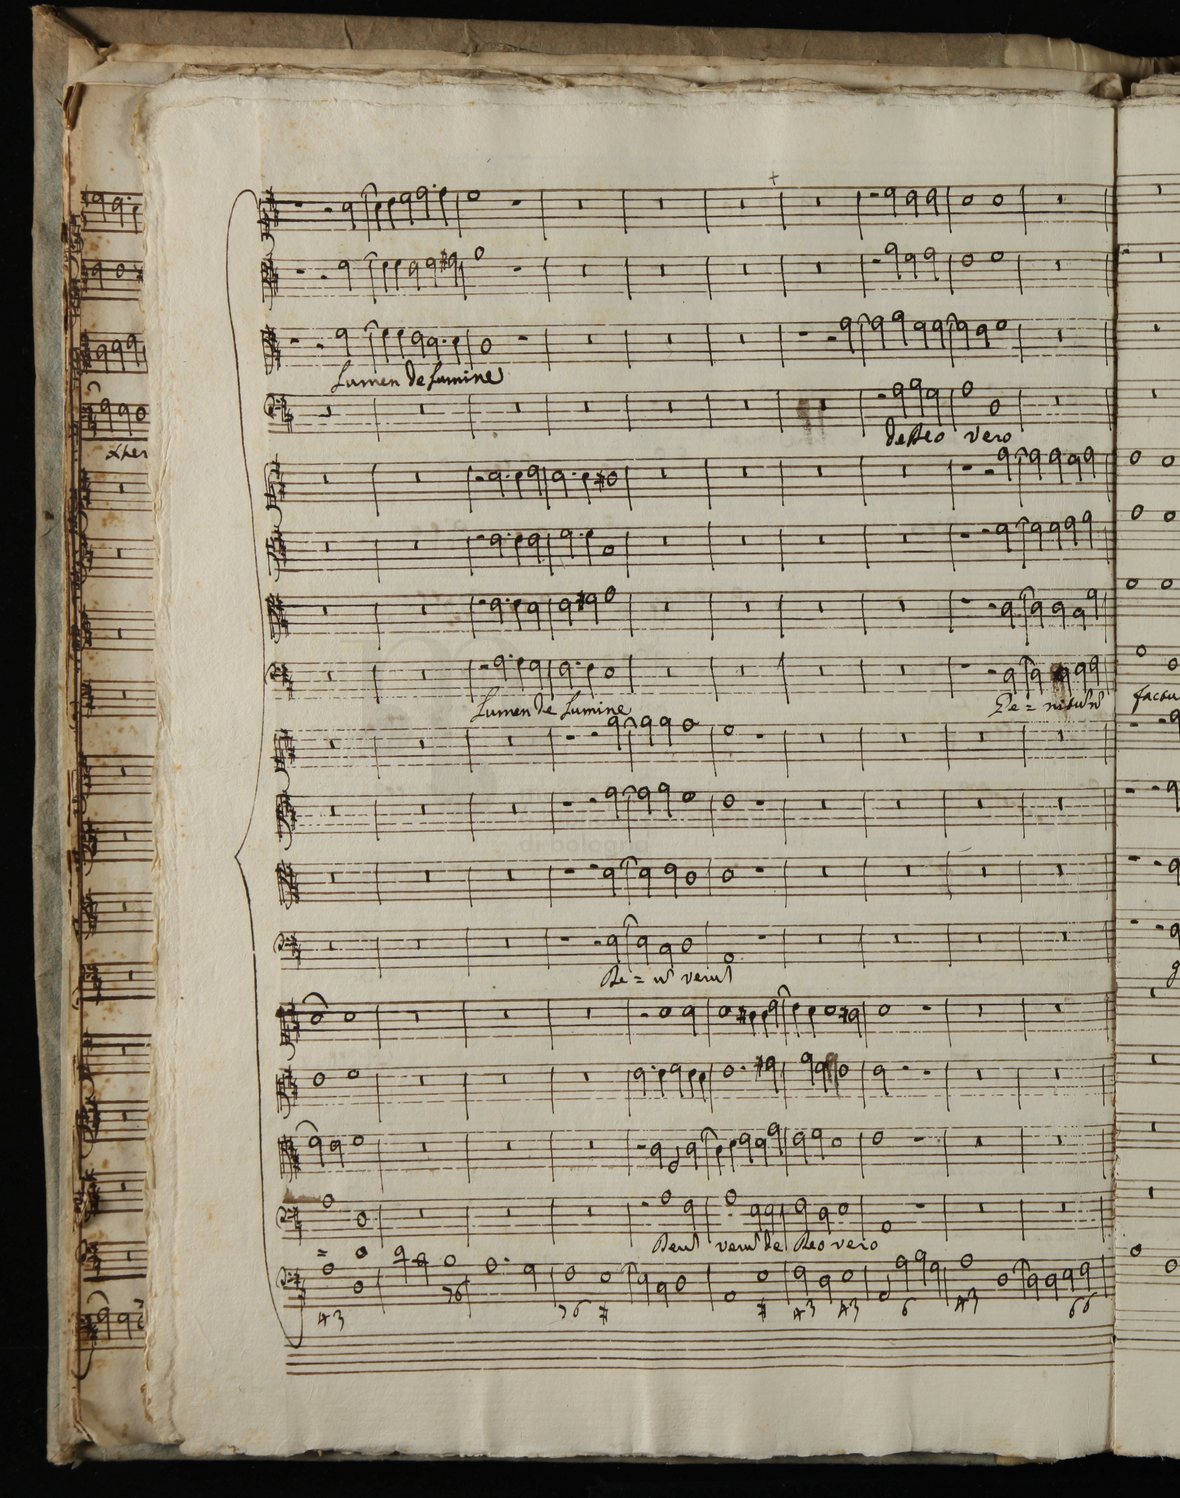 Lumen de Lumine
de Deo vero
xper
Lumen de Lumine
Ge = nitum
factu
di bologna
De = um verum
Deum verum de Deo vero
76
43
76
43
43
6
43
66